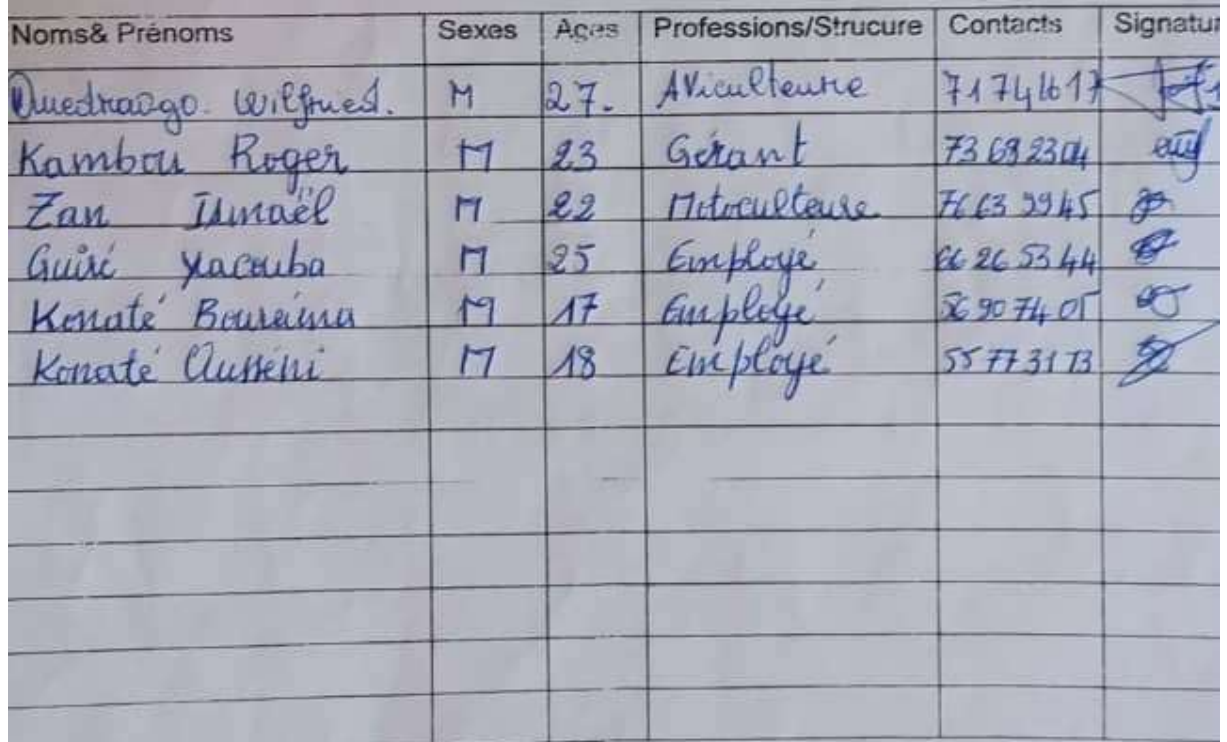 Noms& Prénoms Sexes Ages Professions/Strucure Contacts Signatur
Ouedraogo. Wilfried. M 27. AViculteure 71744617
Kambou Roger M 23 Gérant 73692304
Zan Ismaël M 22 Motoculteuse 76639945
Guiré Yacouba M 25 Employé 66 26 53 44
Konaté Boureima M 17 Employé 56 90 74 05
Konaté Ousséni M 18 Employé 55 77 31 73